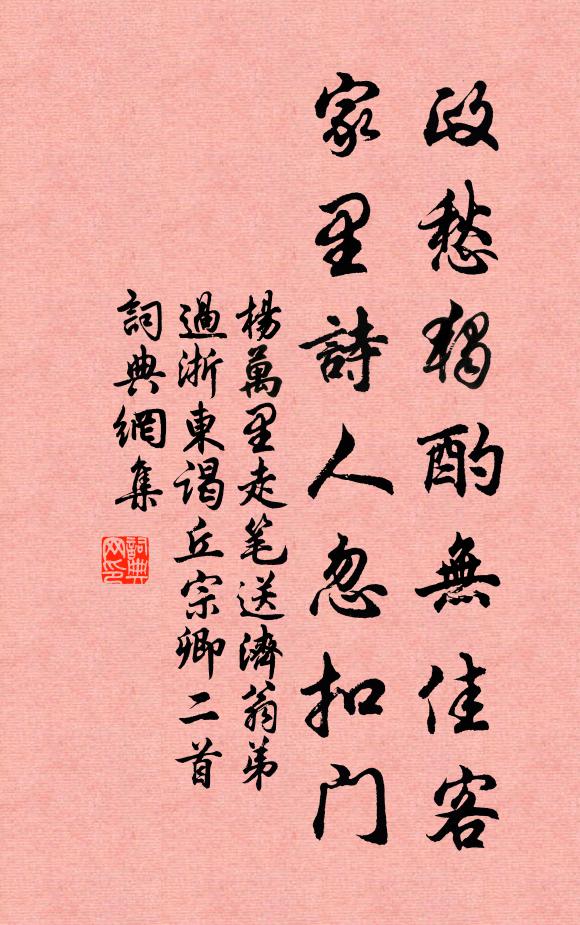 政愁獨酌無佳客
家里詩人忽扣门
楊萬里走笔送濟翁弟
過浙東謁丘宗卿二首
詞典網集
詞典
网印